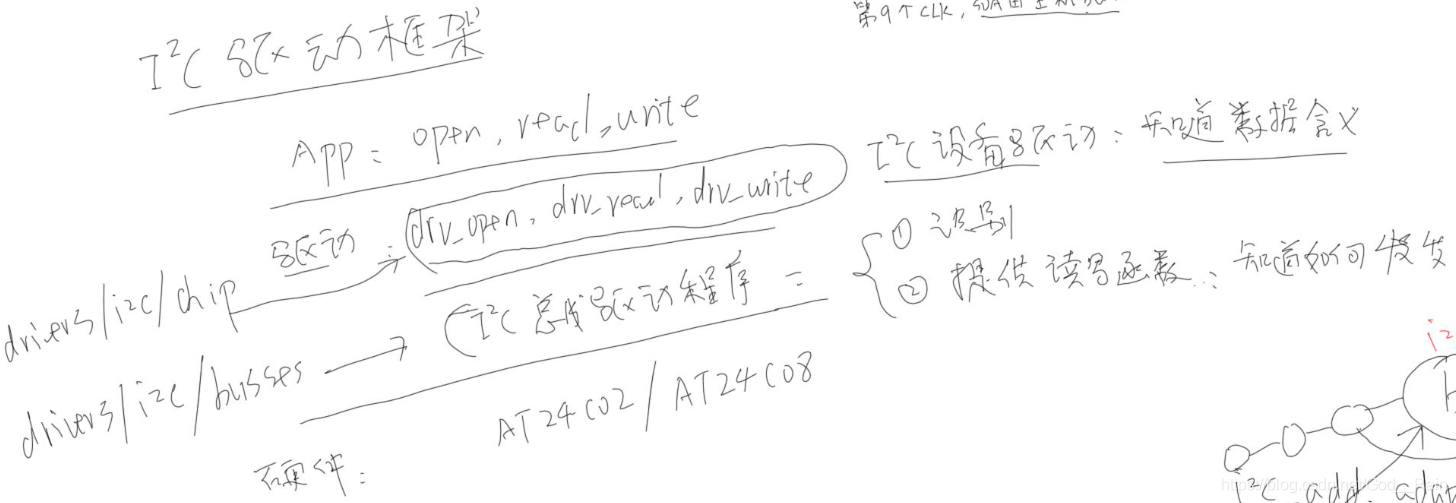 第9个CLK,
I²C 驱动框架
App: open, read, write
I²C 设备驱动: 知道数据含义
驱动: drv_open, drv_read, drv_write
① 识别
drivers/i2c/chip
② 提供读写函数: 知道如何收发
I²C 总线驱动程序:
drivers/i2c/busses
AT24C02/AT24C08
硬件:
i2
i2c_add_adap